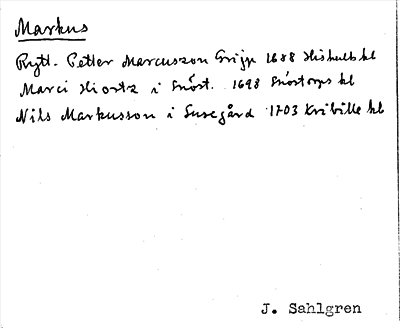 Markus
Rytt. Petter Marcusson Grijp 1688 Hishults kl
Marci Hiortz i Snöst. 1698 Snöstorps kl
Nils Markusson i Susegård 1703 Kvibille kl
J. Sahlgren